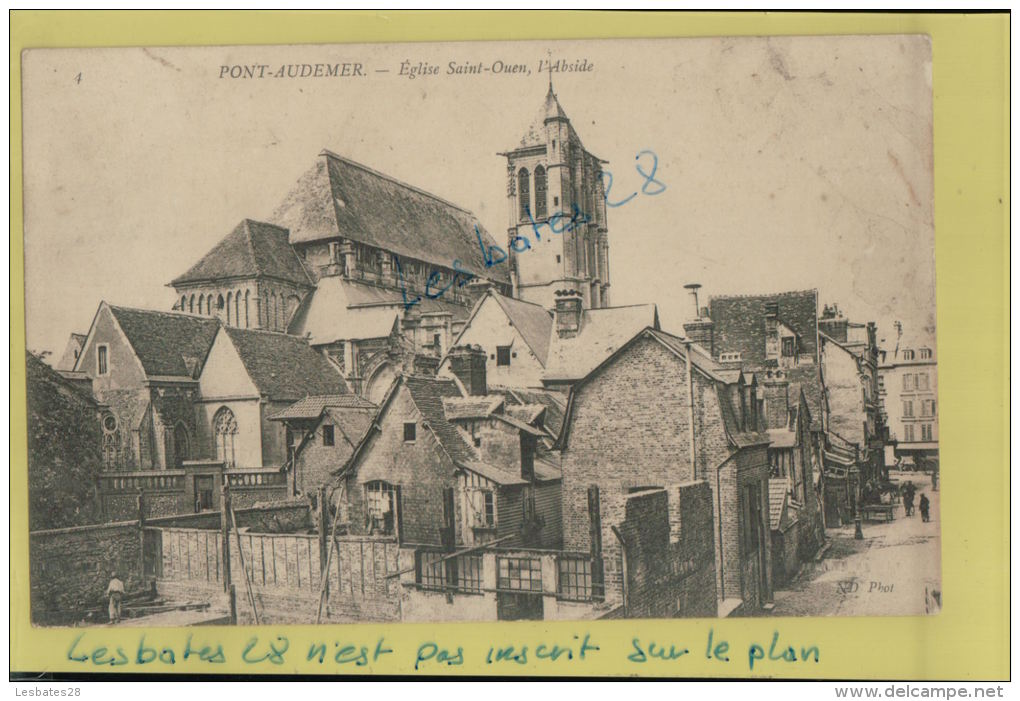 4
PONT-AUDEMER. — Église Saint-Ouen, l'Abside
Lesbates 28
ND Phot
Lesbates 28 n'est pas inscrit sur le plan
Lesbates28
www.delcampe.net